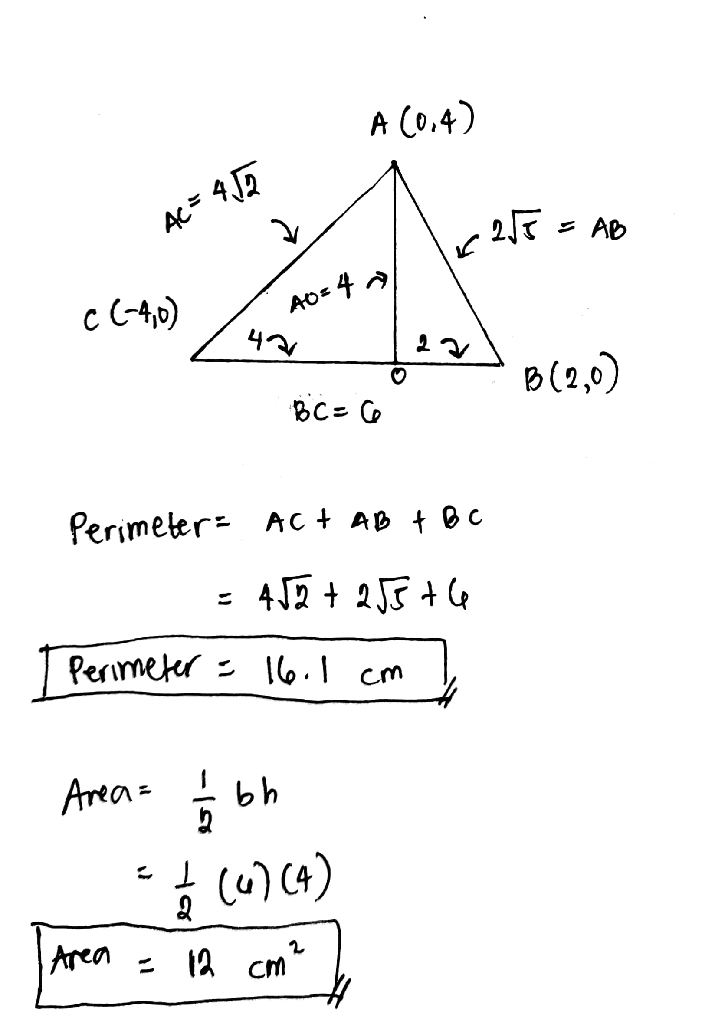 A (0,4)
AC = 4√2
2√5 = AB
AO = 4
C (-4,0)
4
2
O
B (2,0)
BC = 6
Perimeter = AC + AB + BC
= 4√2 + 2√5 + 6
Perimeter = 16.1 cm
Area = 1/2 bh
= 1/2 (6) (4)
Area = 12 cm²